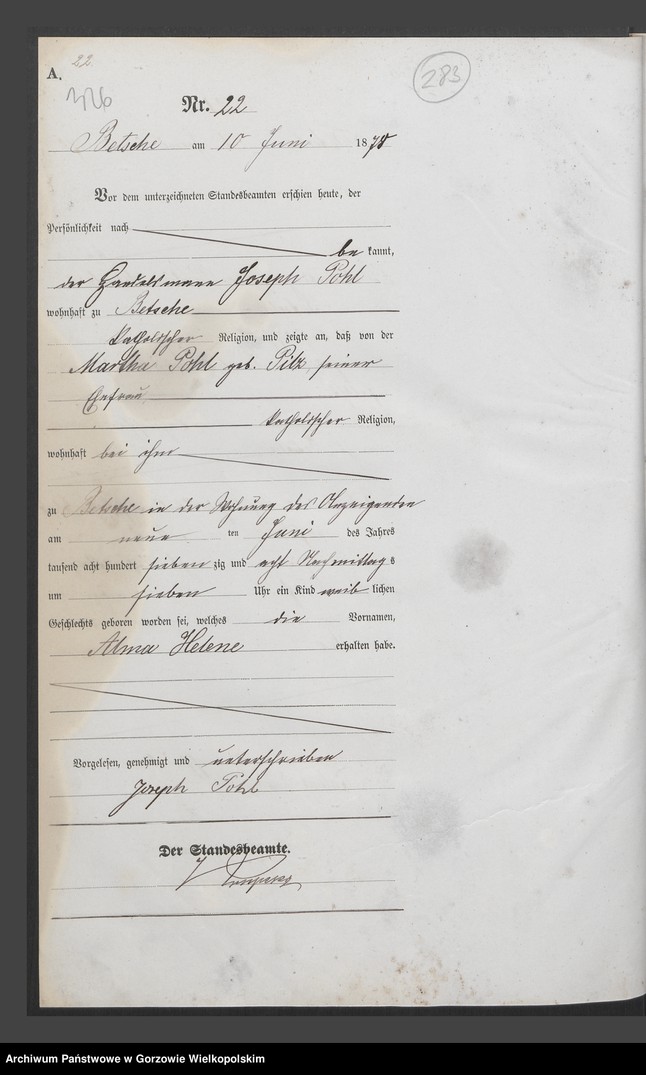 22
A.
283
Nr. 22
Betsche am 10 Juni 1878
Vor dem unterzeichneten Standesbeamten erschien heute, der
Persönlichkeit nach
be kannt,
der Handelsmann Joseph Pohl
wohnhaft zu Betsche
katholischer Religion, und zeigte an, daß von der
Martha Pohl geb. Pilz seiner
Ehefrau
katholischer Religion,
wohnhaft bei ihm
zu Betsche in der Wohnung des Anzeigenden
am neun ten Juni des Jahres
tausend acht hundert sieben zig und acht Nachmittag s
um sieben Uhr ein Kind weib lichen
Geschlechts geboren worden sei, welches die Vornamen,
Alma Helene erhalten habe.
Vorgelesen, genehmigt und unterschrieben
Joseph Pohl
Der Standesbeamte.
Archiwum Państwowe w Gorzowie Wielkopolskim